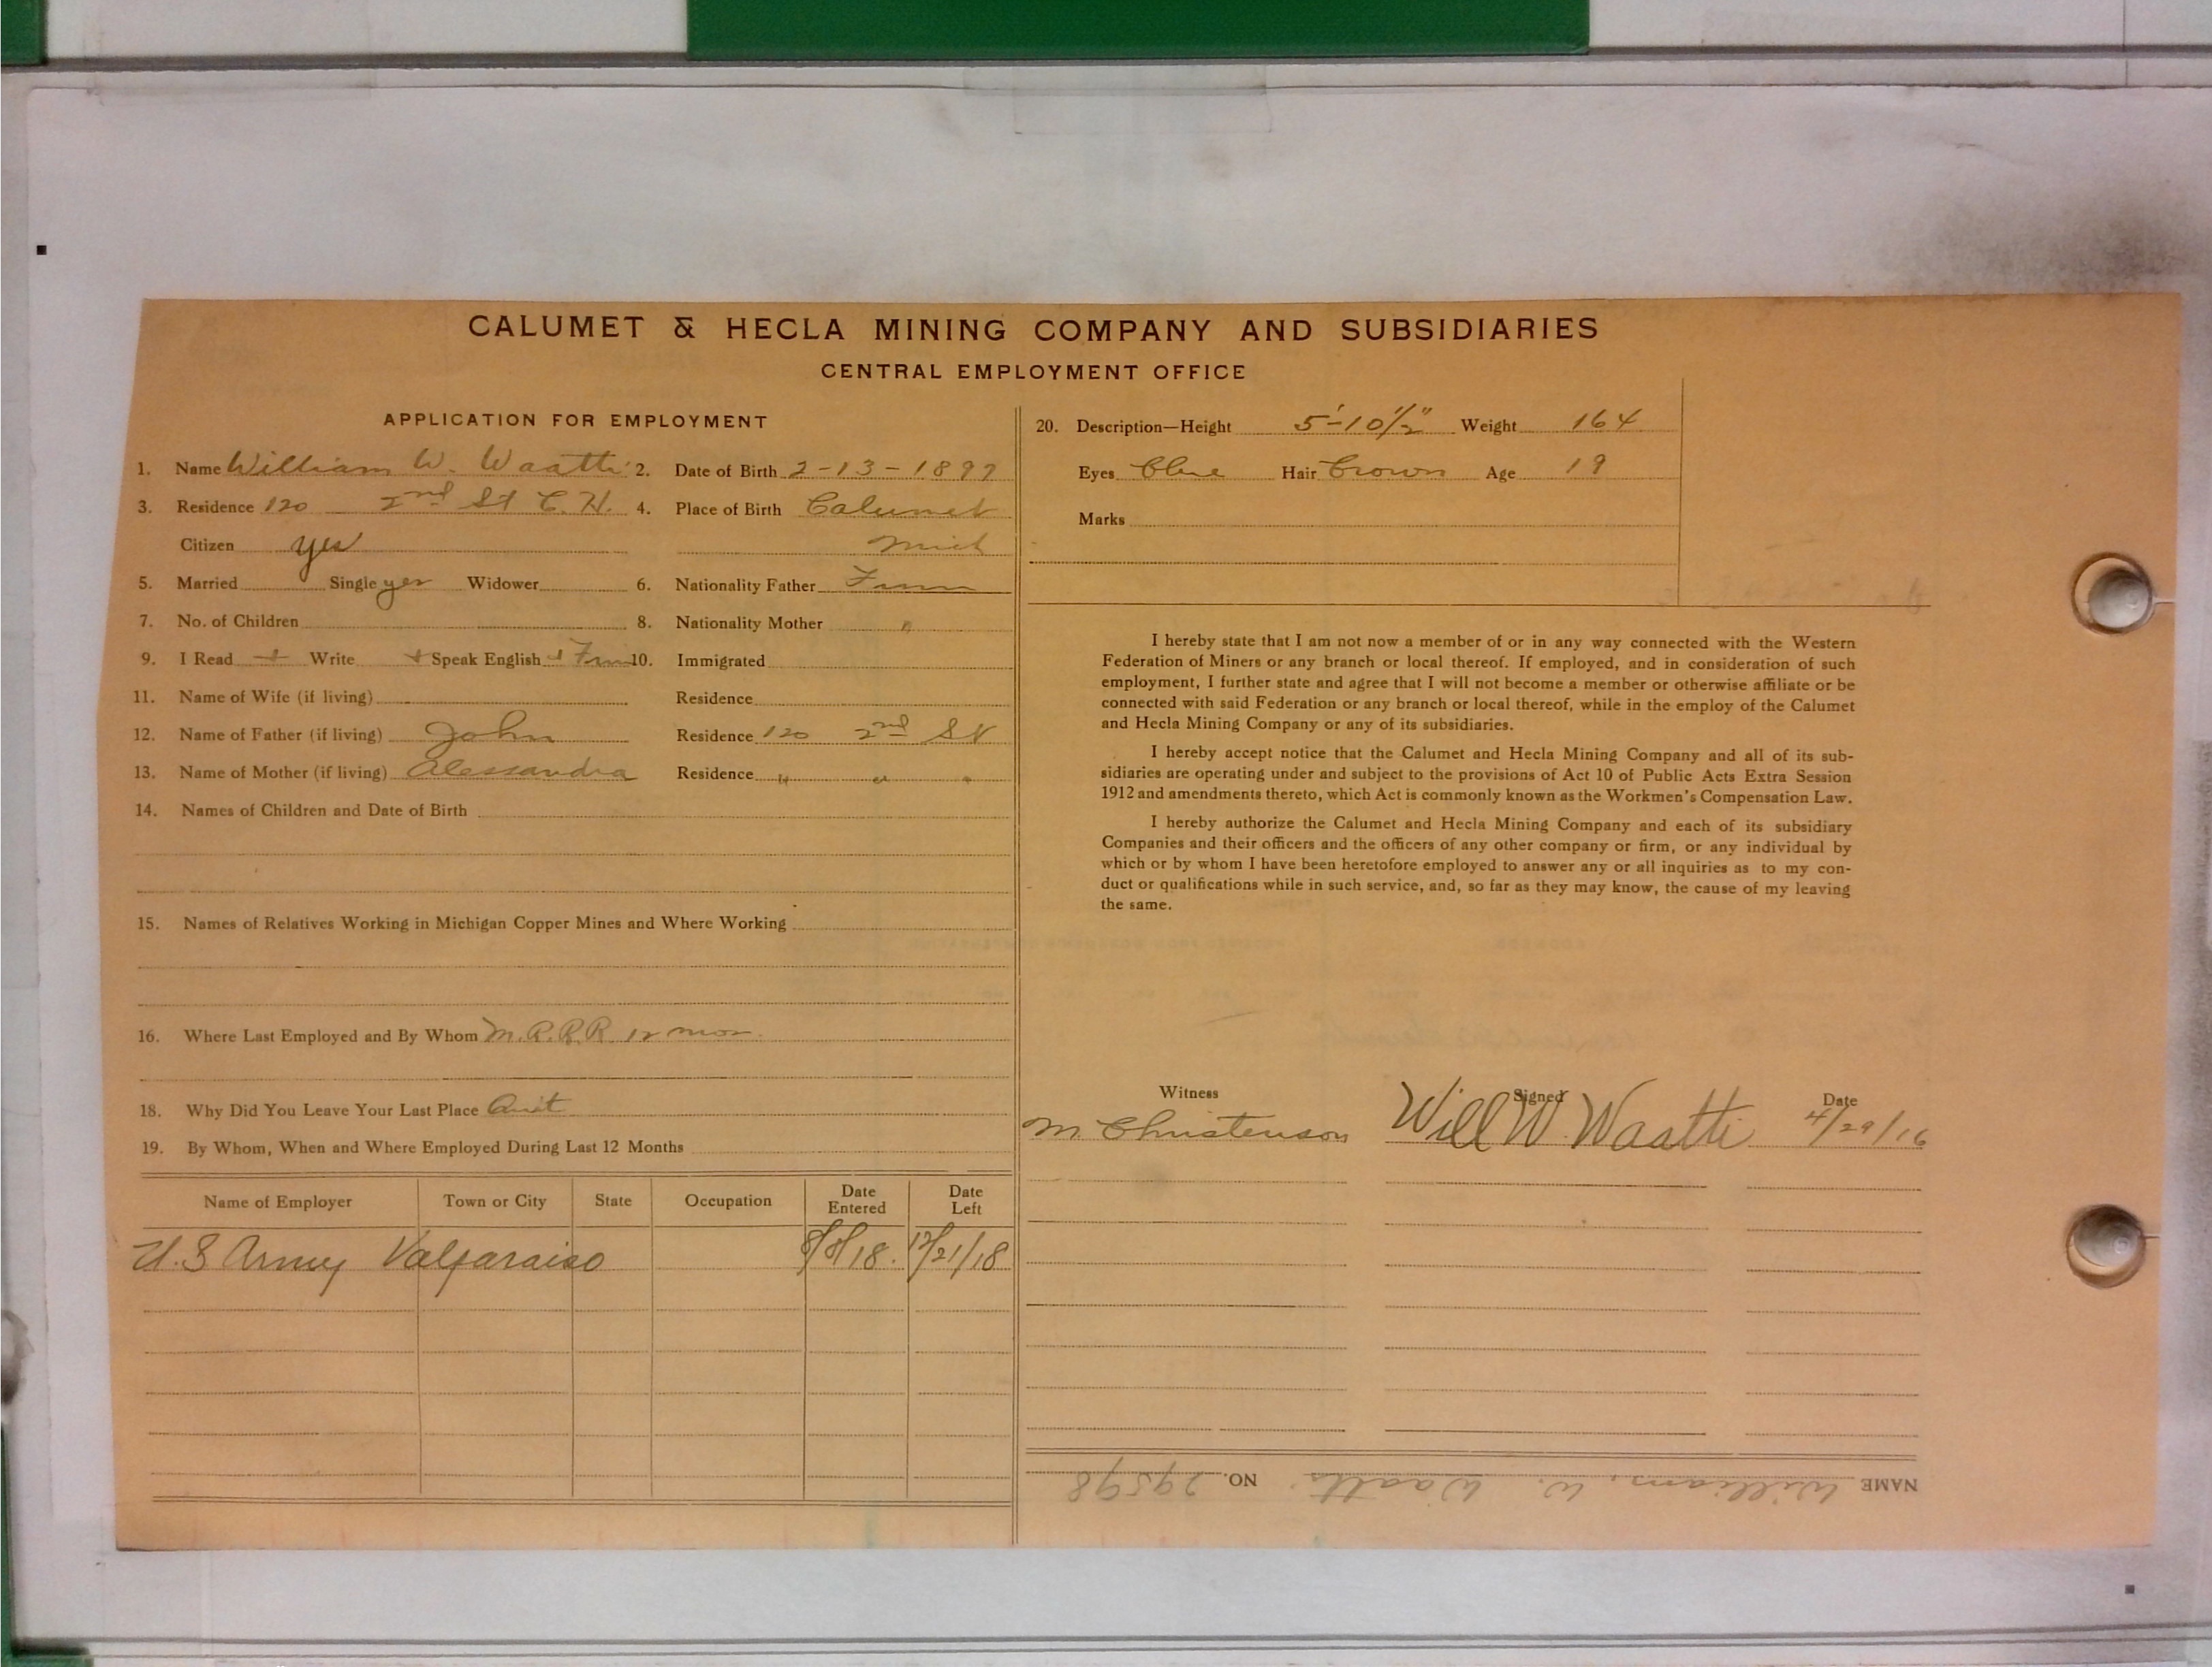 CALUMET & HECLA MINING COMPANY AND SUBSIDIARIES
CENTRAL EMPLOYMENT OFFICE
APPLICATION FOR EMPLOYMENT
1. Name William W. Waatti 2. Date of Birth 2-13-1897
3. Residence 120 2nd St C. H. 4. Place of Birth Calumet
Citizen yes Mich
5. Married Single yes Widower 6. Nationality Father Finn
7. No. of Children 8. Nationality Mother "
9. I Read + Write + Speak English + Finn 10. Immigrated
11. Name of Wife (if living) Residence
12. Name of Father (if living) John Residence 120 2nd St
13. Name of Mother (if living) Alessandra Residence " " "
14. Names of Children and Date of Birth
15. Names of Relatives Working in Michigan Copper Mines and Where Working
16. Where Last Employed and By Whom M.R.R.R. 12 mos.
18. Why Did You Leave Your Last Place Quit
19. By Whom, When and Where Employed During Last 12 Months
Name of Employer Town or City State Occupation Date Entered Date Left
U.S Army Valparaiso 8/8/18. 12/21/18
20. Description—Height 5'-10½" Weight 164
Eyes Blue Hair Brown Age 19
Marks
I hereby state that I am not now a member of or in any way connected with the Western
Federation of Miners or any branch or local thereof. If employed, and in consideration of such
employment, I further state and agree that I will not become a member or otherwise affiliate or be
connected with said Federation or any branch or local thereof, while in the employ of the Calumet
and Hecla Mining Company or any of its subsidiaries.
I hereby accept notice that the Calumet and Hecla Mining Company and all of its sub-
sidiaries are operating under and subject to the provisions of Act 10 of Public Acts Extra Session
1912 and amendments thereto, which Act is commonly known as the Workmen's Compensation Law.
I hereby authorize the Calumet and Hecla Mining Company and each of its subsidiary
Companies and their officers and the officers of any other company or firm, or any individual by
which or by whom I have been heretofore employed to answer any or all inquiries as to my con-
duct or qualifications while in such service, and, so far as they may know, the cause of my leaving
the same.
Witness Signed Date
M. Christenson Will W. Waatti 4/29/16
NAME William, W. Waatti NO. 29598